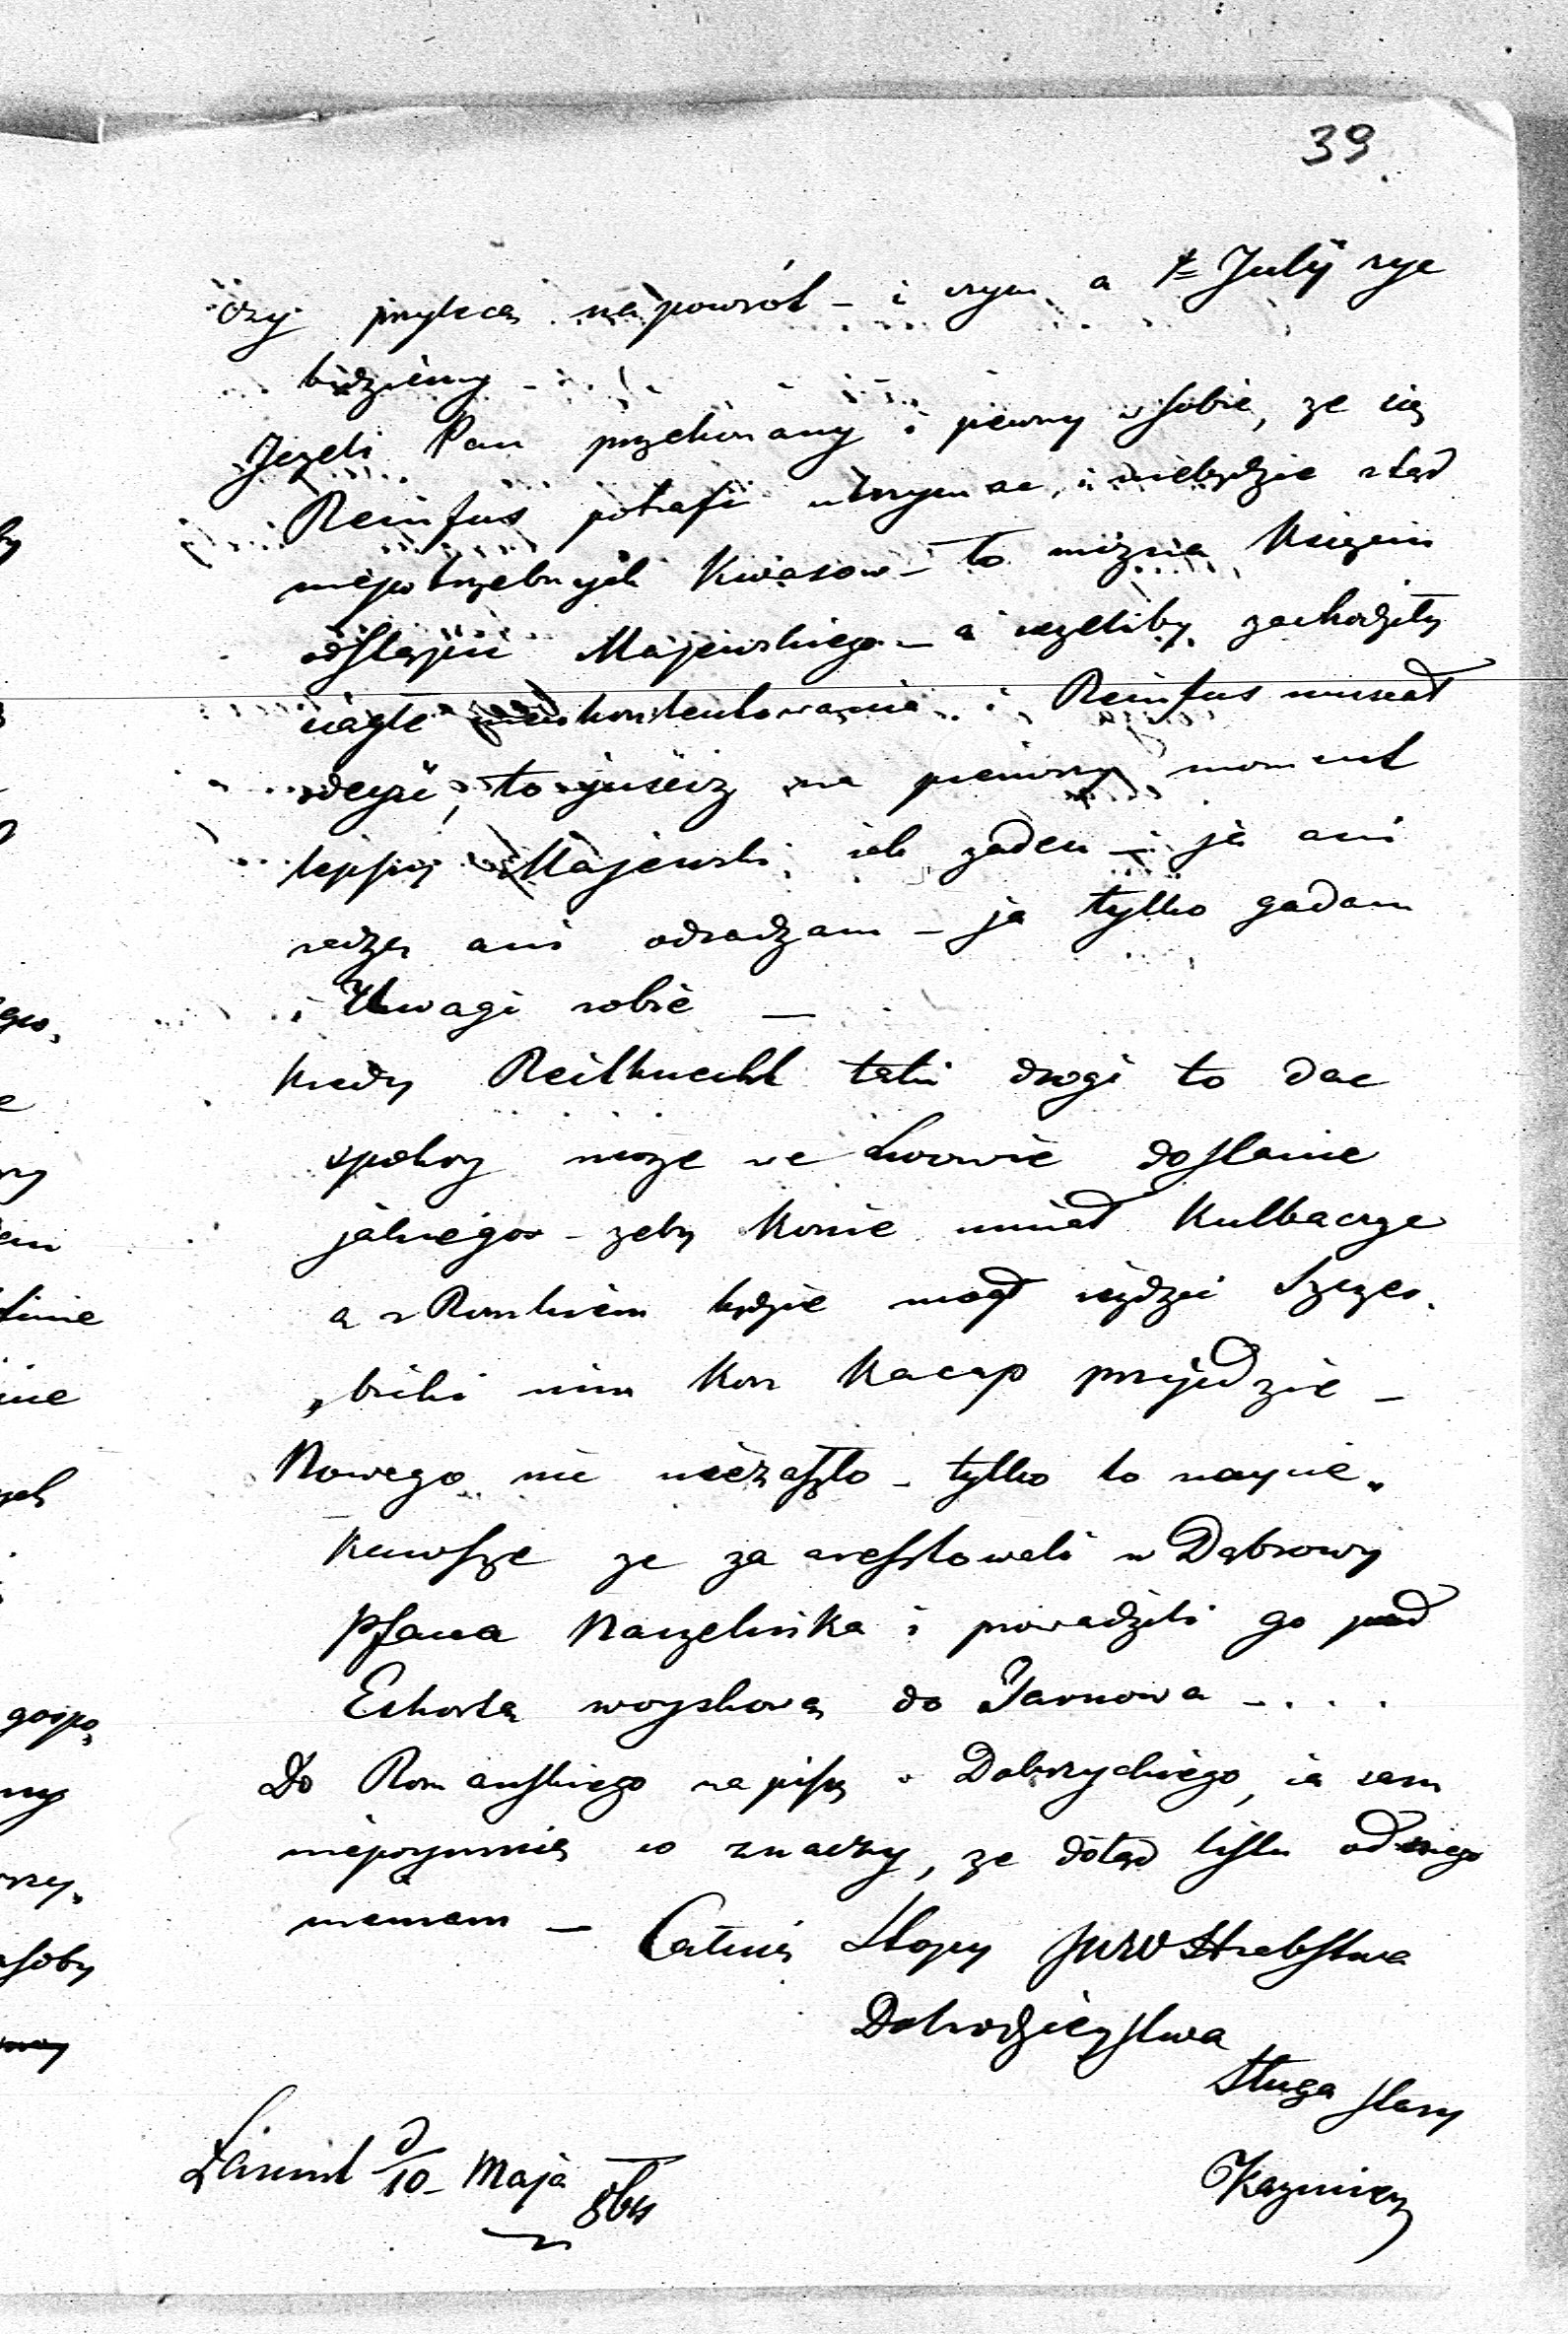 39
czy przylecą napowrót – i czym a 1= July żyć
będziemy –
Jezeli Pan przekonany i pewny w sobie, ze się
Reinfus potrafi utrzymac, i niebędzie ztąd
niepotrzebnych Kwasow – to mozna Księciu
odstąpić Majewskiego – a iezeliby zachodziły
ciągłe nieukontentowania i Reinfus musiał
odeyść, to juściż na pierwszy moment
lepszy Majewski jak zaden – ja ani
radzę ani odradzam – ja tylko gadam
i Uwagi robie –
Kiedy Reitknecht taki drogi to dac
spokoy moze we Lwowie dostanie
jakiegos – zeby Konie umiał Kulbaczyc
a z Romkiem będzie mogł ieździć Szczer„
„bicki nim Kon Kacap przyjedzie –
Nowego nic niezaszło – tylko to naycie„
Kawsze ze za aresztowali w Dąbrowy
Pfaua Naczelnika i prowadzili go pod
Eskortą woyskową do Tarnowa – . . .
Do Romanskiego napiszę o Dobrzyckiego, ia sam
nierozumię co znaczy, ze dotąd listu od niego
niemam – Całuię Stopy JWW Hrabstwa
Dobrodzieystwa
Sługa stary
Kazmierz
Łancut d/10 – Maja 864